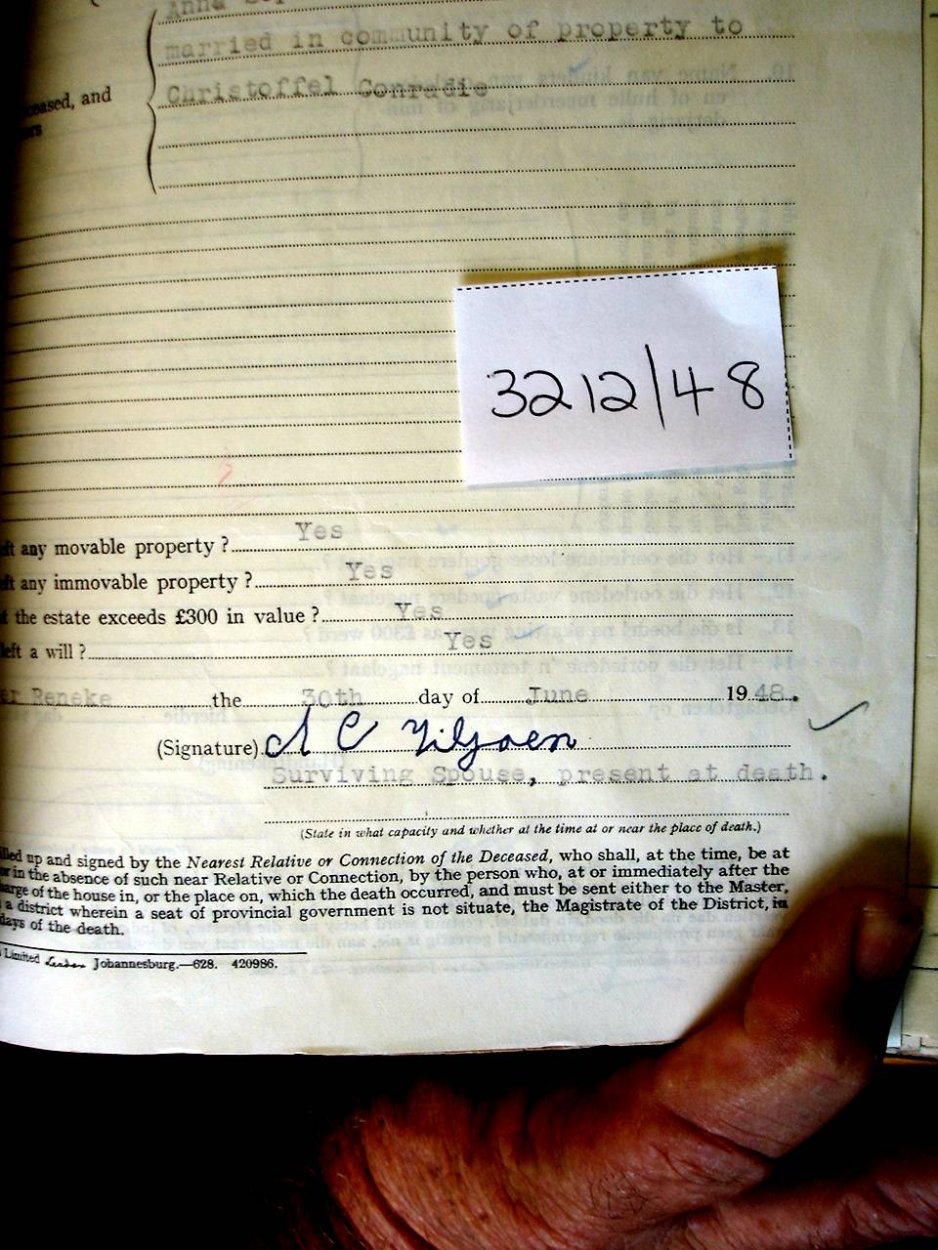 Anna
married in community of property to
Christoffel Conradie
ceased, and
3212/48
ft any movable property ? Yes
ft any immovable property ? Yes
the estate exceeds £300 in value ? Yes
left a will ? Yes
er Reneke the 30th day of June 1948.
(Signature) C Viljoen
Surviving Spouse, present at death.
(State in what capacity and whether at the time at or near the place of death.)
lled up and signed by the Nearest Relative or Connection of the Deceased, who shall, at the time, be at
or in the absence of such near Relative or Connection, by the person who, at or immediately after the
arge of the house in, or the place on, which the death occurred, and must be sent either to the Master,
a district wherein a seat of provincial government is not situate, the Magistrate of the District, in
days of the death.
Limited Johannesburg.—628. 420986.